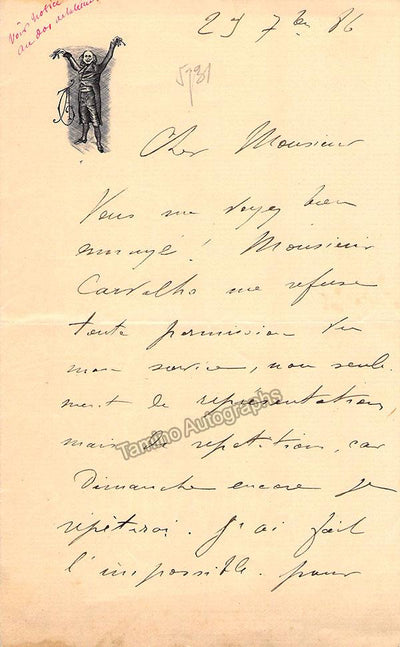 Voir notice
au dos,
29 7bre 86
5731
Cher Monsieur
Vous me voyez bien
ennuyé! Monsieur
Carvalho me refuse
toute permission vu
mon service, non seule
ment de représentation
mais de répétition, car
Dimanche encore je
répéterai. J'ai fait
l'impossible pour
Tamino Autographs